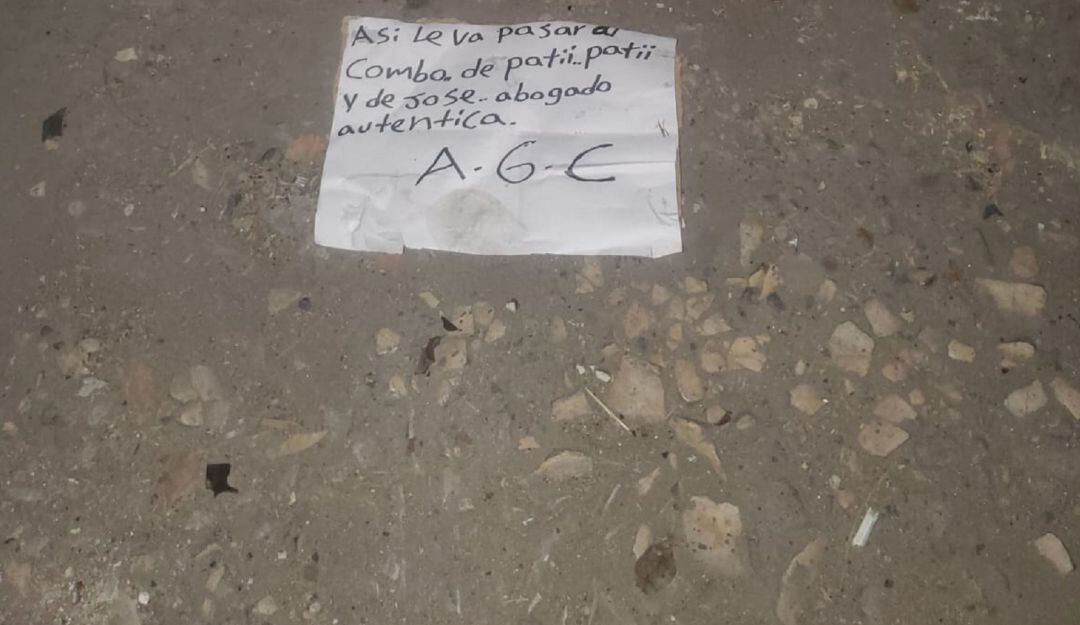 Asi le va pasar al
Combo.. de patii..patii
y de Jose.. abogado
autentica.
A.G.C